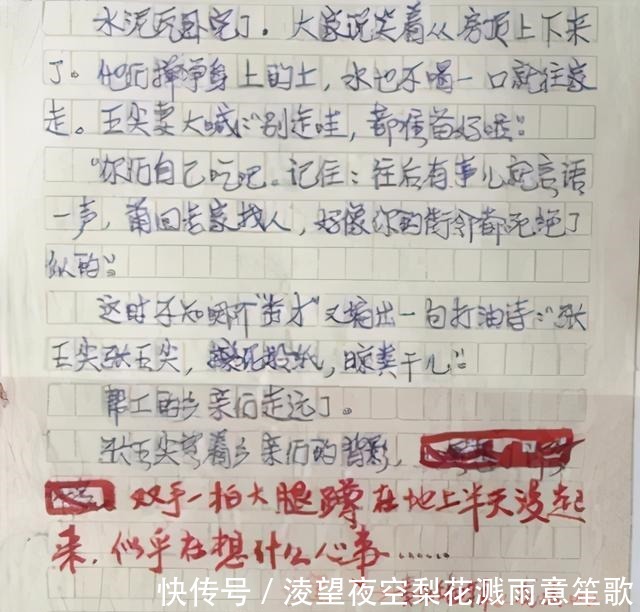 水泥瓦卧完了。大家说笑着从房顶上下来
了。他们掸净身上的土,水也不喝一口就往家
走。王尖妻大喊:“别走哇,都准备好啦”
“你们自己吃吧。记住:往后有事儿就言语
一声,甭回老家找人,好像你的街邻都死绝了
似的”
这时不知哪个“秀才”又编出一句打油诗:“张
王尖张王尖,
晾粪干儿”
帮工的乡亲们走远了。
张王尖望着乡亲们的背影,
双手一拍大腿蹲在地上半天没起
来,似乎在想什么心事……
快传号/淩望夜空梨花溅雨意笙歌